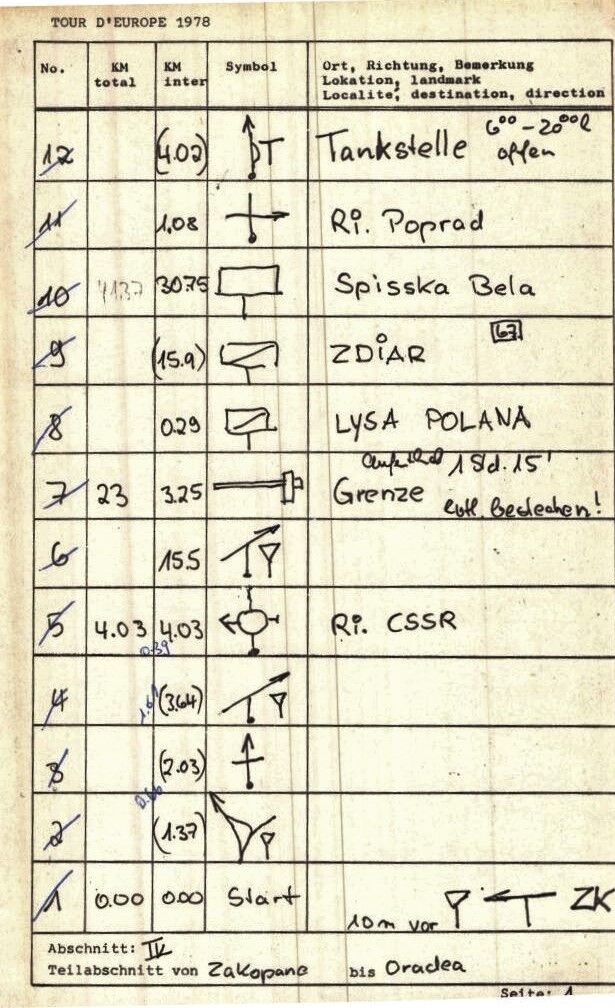 TOUR D'EUROPE 1978
No. KM total KM inter Symbol Ort, Richtung, Bemerkung
Lokation, landmark
Localité, destination, direction
12 (4.02) T Tankstelle 6⁰⁰-20⁰⁰ offen
11 1,08 Ri. Poprad
10 41.37 30.75 Spisska Bela
9 (15.9) ZDIAR 67
8 0.29 LYSA POLANA
7 23 3.25 Grenze 1 Std. 15'
bestechen!
6 15.5
5 4.03 4.03 Ri. CSSR
0.39
4 1.61 (3.64)
3 (2.03)
0.66
2 (1.37)
1 0.00 0.00 Start 10 m vor ZK
Abschnitt: IV
Teilabschnitt von Zakopane bis Oradea
Seite: 1